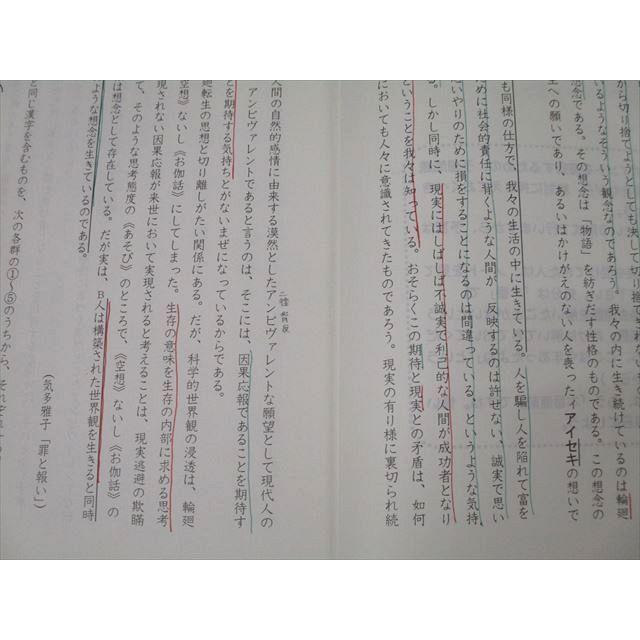 から切り捨てようとしても決して切り捨てられない
いるようなそういう観念なのであろう。我々の内に生き続けているのは輪廻
想念である。その想念は「物語」を紡ぎだす性格のものである。この想念の
生への願いであり、あるいはかけがえのない人を喪ったアイセキの想いで
も同様の仕方で、我々の生活の中に生きている。人を騙し人を陥れて富を
ために社会的責任に背くような人間が 反映するのは許せない、誠実で思い
たいやりのために損をすることになるのは間違っている、というような気持
る。しかし同時に、現実にはしばしば不誠実で利己的な人間が成功者となり
ということを我々は知っている。おそらくこの期待と現実との矛盾は、如何
においても人々に意識されてきたものであろう。現実の有り様に裏切られ続
人間の自然的感情に由来する漠然としたアンビヴァレントな願望として現代人の
二律背反
アンビヴァレントであると言うのは、そこには、因果応報であることを期待す
とを期待する気持ちとがないまぜになっているからである。
廻転生の思想と切り離しがたい関係にある。だが、科学的世界観の浸透は、輪廻
空想》ないし《お伽話》にしてしまった。生存の意味を生存の内部に求める思考
現されない因果応報が来世において実現されると考えることは、現実逃避の欺瞞
て、そのような思考態度の《あそび》のところで、《空想》ないし《お伽話》の
は想念として存在している。だが実は、B人は構築された世界観を生きると同時
ような想念を生きているのである。
(気多雅子「罪と報い」)
と同じ漢字を含むものを、次の各群の①〜⑤のうちから、それぞれ